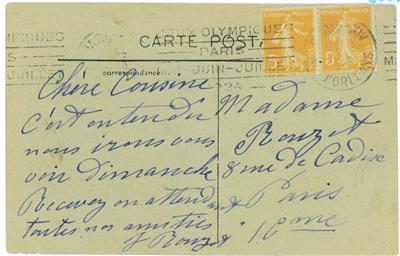 JEUX OLYMPIQUES
PARIS
MAI-JUIN-JUILLET
1924
CARTE POSTALE
correspondance
5c
5c
D'ORLEANS
Chère Cousine
c'est entendu
nous irons vous
voir dimanche
Recevez en attendant
toutes nos amitiés
J Rouzet
Madame
Rouzet
8 rue de Cadix
Paris
15eme